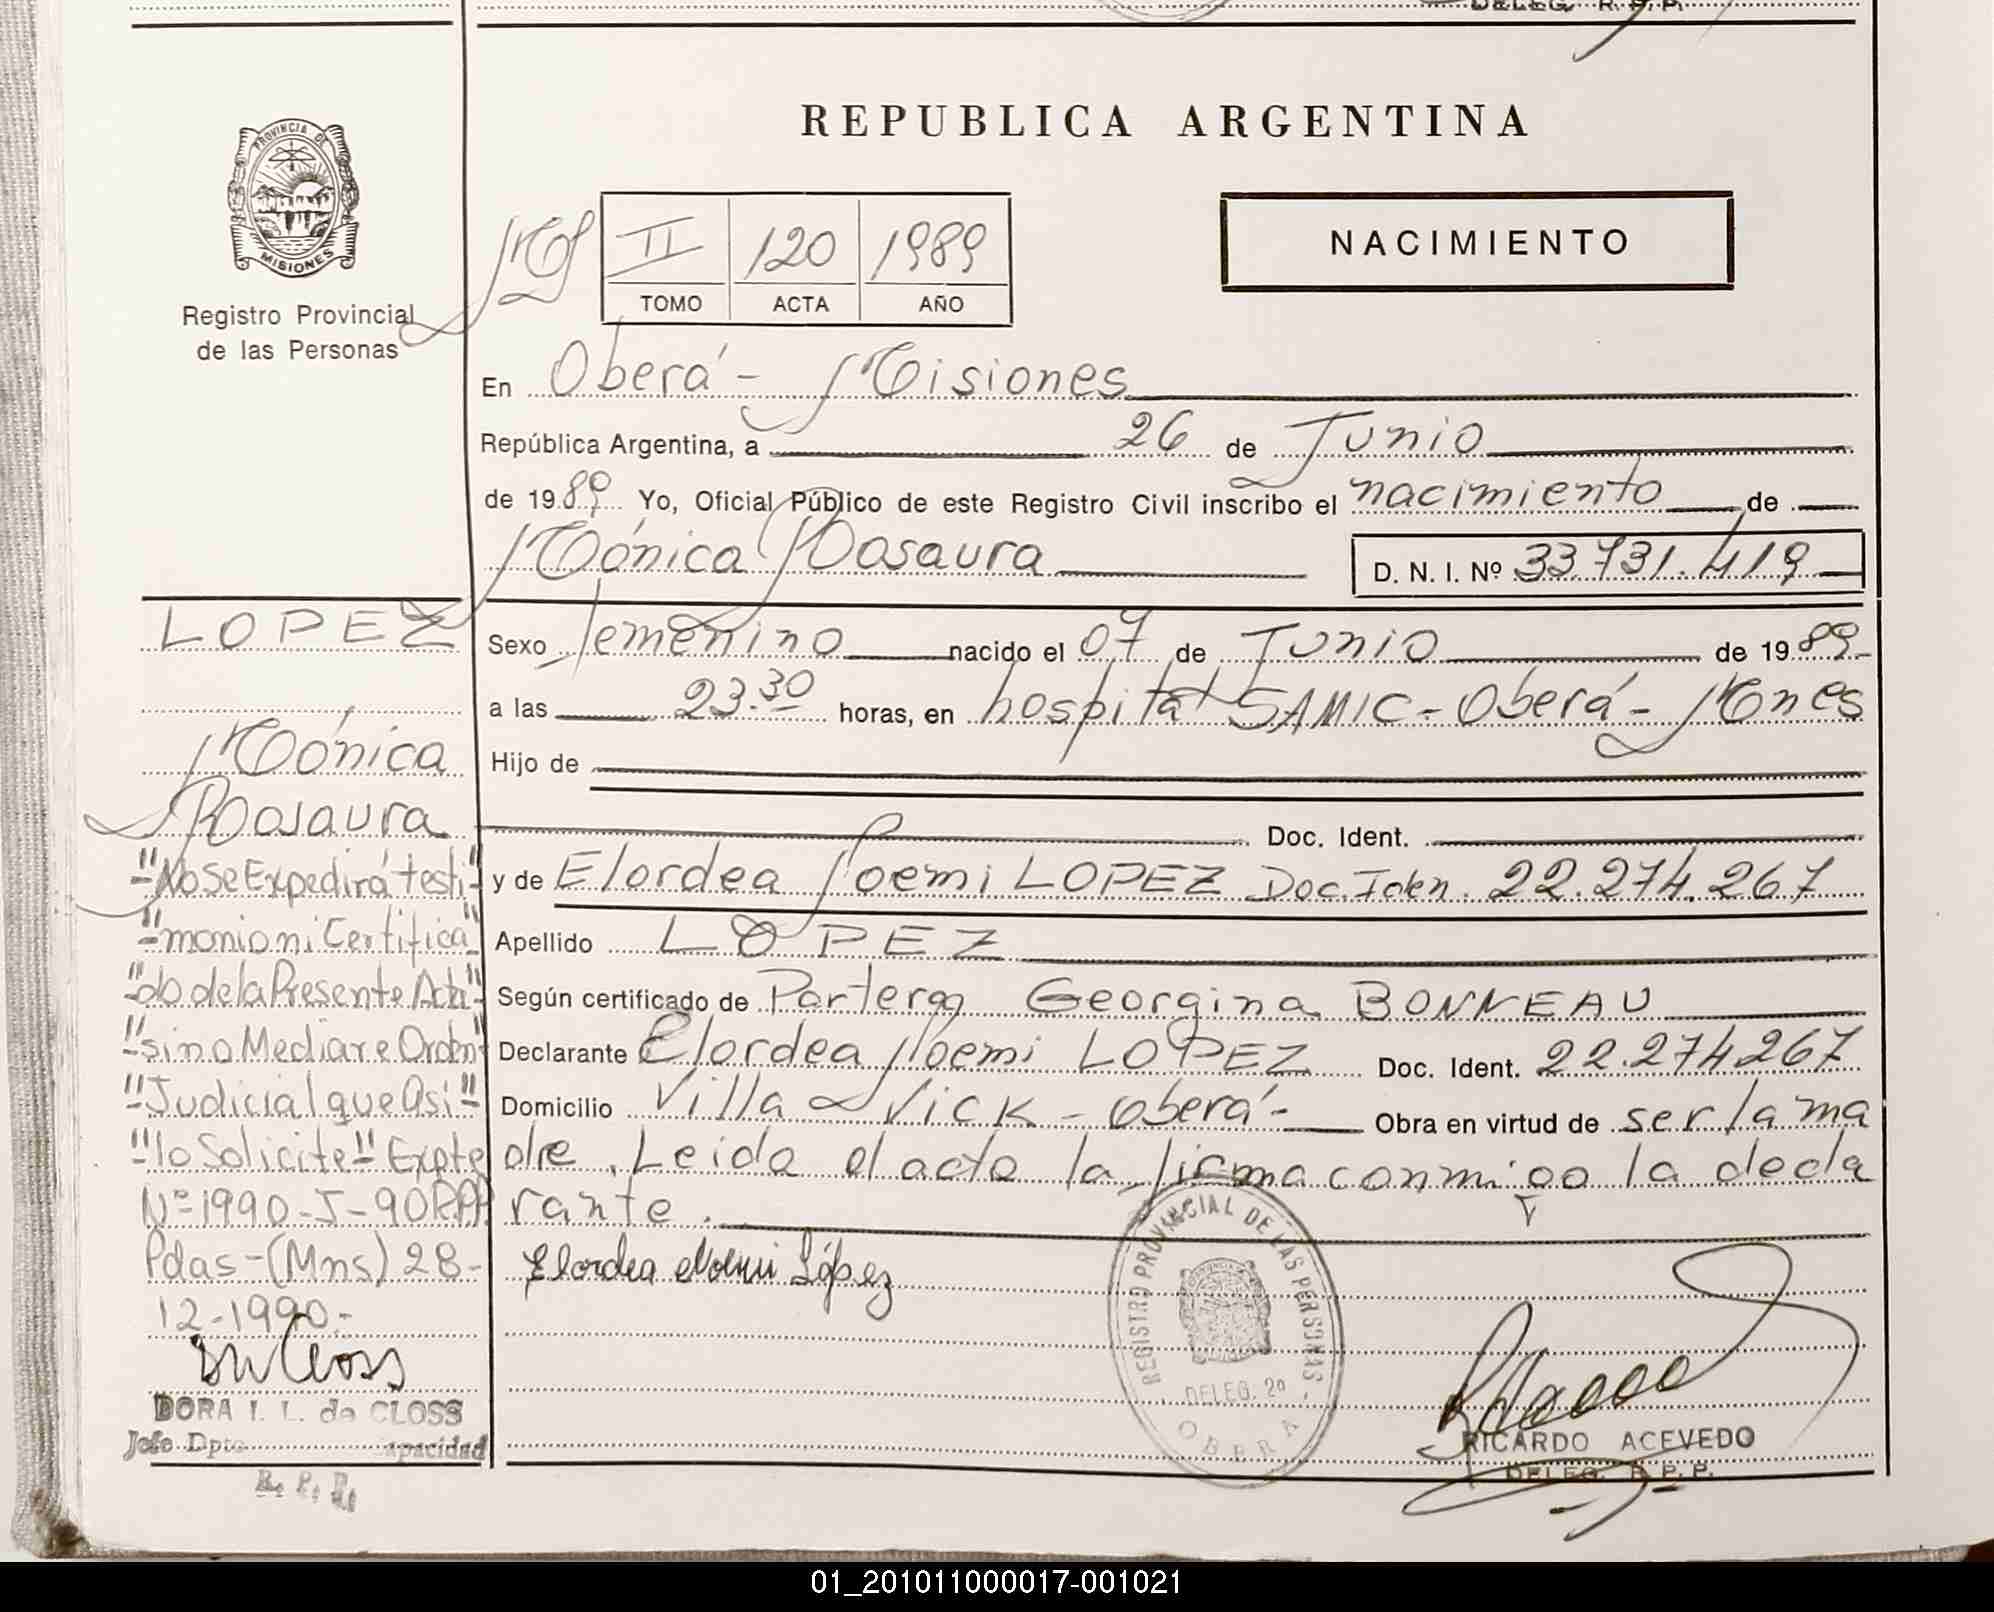 DELEG. R. P. P.
PROVINCIA DE
MISIONES
Registro Provincial
de las Personas
REPUBLICA ARGENTINA
II 120 1989
TOMO ACTA AÑO
NACIMIENTO
En Oberá - Misiones
República Argentina, a 26 de Junio
de 1989 Yo, Oficial Público de este Registro Civil inscribo el nacimiento de
Mónica Rosaura D. N. I. Nº 33.731.419
Sexo femenino nacido el 07 de Junio de 1989
a las 23.30 horas, en hospital SAMIC - Oberá - Mnes
Hijo de
Doc. Ident.
y de Elordea Noemi LOPEZ Doc. Iden. 22.274.267
Apellido LOPEZ
Según certificado de Partera Georgina BONNEAU
Declarante Elordea Noemi LOPEZ Doc. Ident. 22.274.267
Domicilio Villa Vick - Oberá - Obra en virtud de ser la ma
dre. Leida el acta la firma conmigo la decla
rante.
Elordea Noemi López
REGISTRO PROVINCIAL DE LAS PERSONAS -
DELEG. 2º
OBERA
RICARDO ACEVEDO
DELEG. R. P. P.
LOPEZ
Mónica
Rosaura
"No Se Expedirá testi"
"monio ni Certifica"
"do de la Presente Acta"
"sino Mediare Orden"
"Judicial que Asi"
"lo Solicite" Expte
Nº 1990-J-90 R.P.P.
Pdas - (Mns) 28-
12-1990.-
DORA I. L. de CLOSS
Jefe Dpto apacidad
R. P. P.
01_201011000017-001021